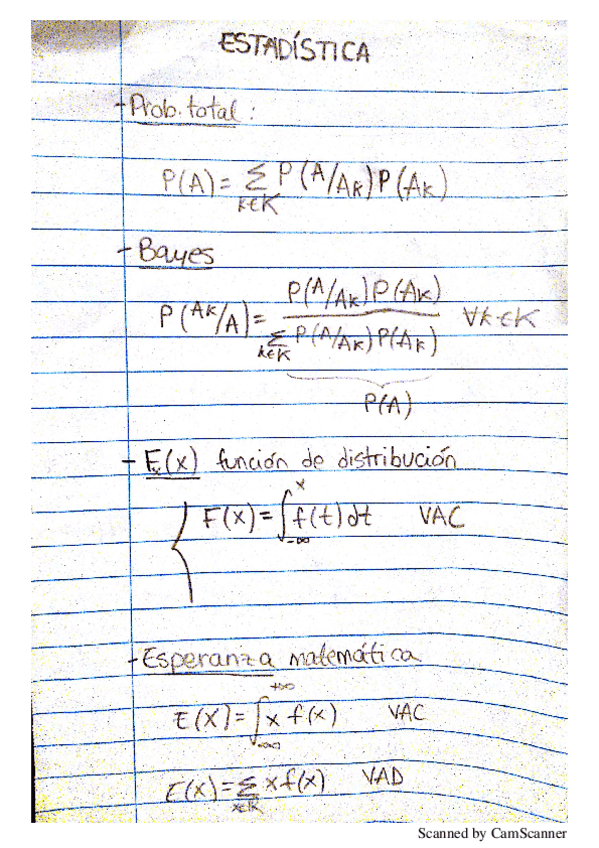 ESTADÍSTICA
- Prob. total:
P(A) = Σ P(A/Ak) P(Ak)
k∈K
- Bayes
P(Ak/A) = P(A/Ak) P(Ak) / Σ P(A/Ak) P(Ak) ∀k∈K
k∈K
P(A)
- F(x) función de distribución
F(x) = ∫ f(t) dt VAC
x
-∞
- Esperanza matemática
+∞
E(X) = ∫ x f(x) VAC
-∞
E(x) = Σ x f(x) VAD
x∈K
Scanned by CamScanner